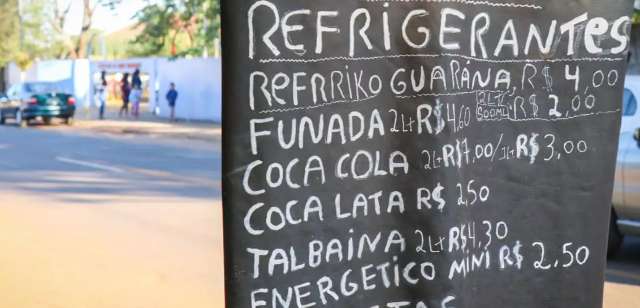 REFRIGERANTES
REFRRIKO GUARÁNA R$ 4,00
FUNADA 2Lt R$4,60 2LtZ 500ML R$ 2,00
COCA COLA 2Lt R$7,00/1Lt R$ 3,00
COCA LATA R$ 2,50
TALBAINA 2Lt R$4,30
ENERGETICO MINI R$ 2,50